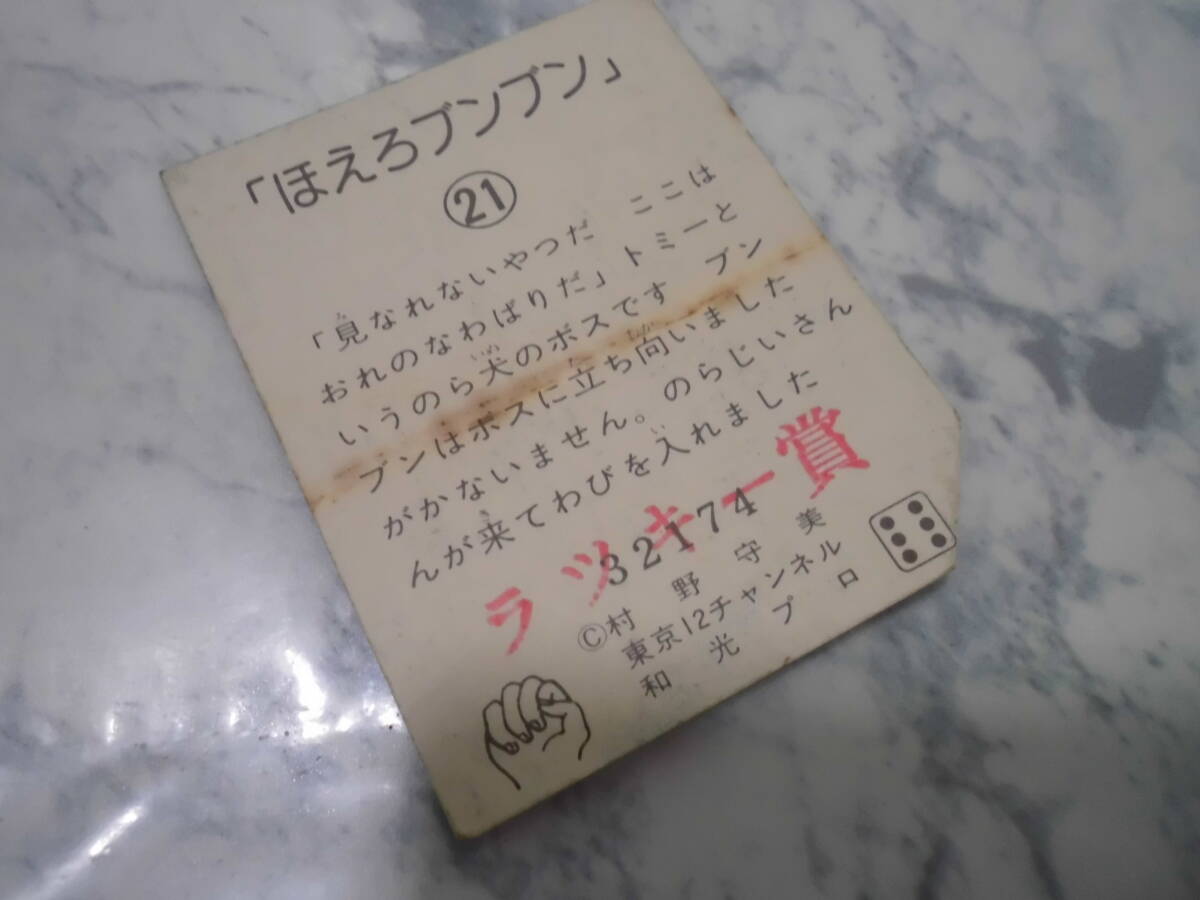 「ほえろブンブン」
21
「見なれないやつだ ここは
おれのなわばりだ」トミーと
いうのら犬のボスです ブン
ブンはボスに立ち向いました
がかないません。のらじいさん
んが来てわびを入れました
ラッキー賞
32174
©村野守美
東京12チャンネル
和光プロ